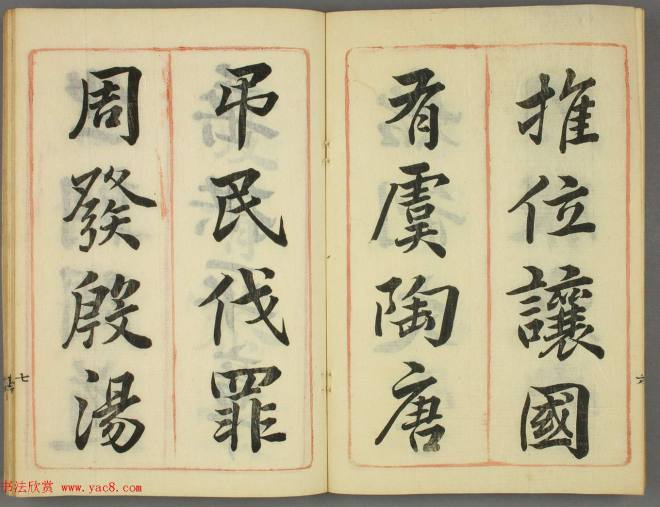 推位讓國
有虞陶唐
弔民伐罪
周發殷湯
七
六
书法欣赏 www.yac8.com